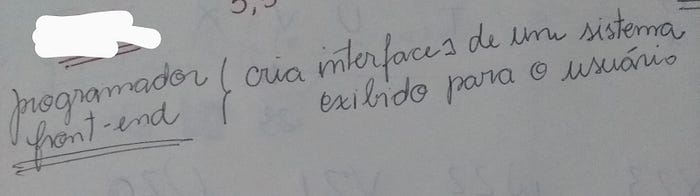 5,5
programador { cria interfaces de um sistema
front-end exibido para o usuário